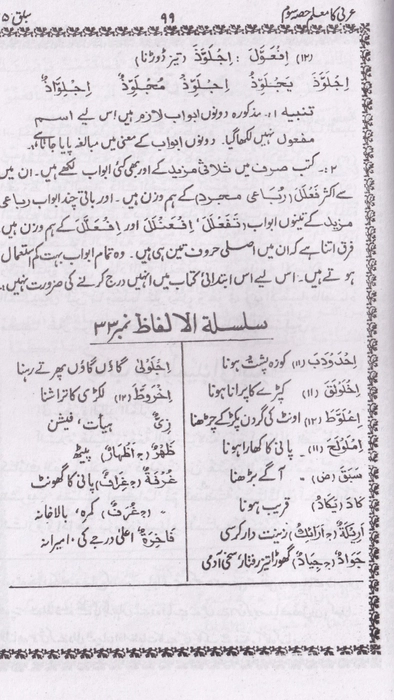 عربی کا معلم حصہ سوم ۹۹ سبق ۵
(۱۲) اِفْعَوَّلَ: اِجْلَوَّذَ (تیز دوڑنا)
اِجْلَوَّذَ یَجْلَوِّذُ اِجْلَوِّذْ مُجْلَوِّذٌ اِجْلِوَّاذٌ
تنبیہ ۱:۔ مذکورہ دونوں ابواب لازم ہیں اس لیے اسم
مفعول نہیں لکھا گیا۔ دونوں ابواب کے معنی میں مبالغہ پایا جاتا ہے۔
۲:۔ کتب صرف میں ثلاثی مزید کے اور بھی کئی ابواب لکھے ہیں۔ ان میں
سے اکثر فَعْلَلَ (رباعی مجرد) کے ہم وزن ہیں۔ اور باقی چند ابواب رباعی
مزید کے تینوں ابواب (تَفَعْلَلَ، اِفْعَنْلَلَ اور اِفْعَلَلَّ) کے ہم وزن ہیں۔
فرق اتنا ہے کہ ان میں اصلی حروف تین ہی ہیں۔ وہ تمام ابواب بہت کم استعمال
ہوتے ہیں۔ اس لیے اس ابتدائی کتاب میں انہیں درج کرنے کی ضرورت نہیں۔
سلسلۃ الالفاظ نمبر ۳۳
اِحْدَوْدَبَ (۱۱) کوزہ پشت ہونا
اِخْلَوْلَقَ (۱۱) کپڑے کا پرانا ہونا
اِعْلَوَّطَ (۱۲) اونٹ کی گردن پکڑ کے چڑھنا
اِمْلَوْلَحَ (۱۱) پانی کا کھارا ہونا
سَبَقَ (ض) آگے بڑھنا
کَادَ (یَکَادُ) قریب ہونا
اَرِیْکَۃٌ (ج اَرَائِکُ) زینت دار کرسی
جَوَادٌ (ج جِیَادٌ) گھوڑا تیز رفتار، سخی آدمی
اِجْلَوْلٰی گاؤں گاؤں پھرتے رہنا
اِخْرَوَّطَ (۱۲) لکڑی کا تراشنا
زِیٌّ ہیأت، فیشن
ظَهْرٌ (ج اَظْهَارٌ) پیٹھ
غُرْفَۃٌ (ج غِرَافٌ) پانی کا گھونٹ
" (ج غُرَفٌ) کمرہ، بالاخانہ
فَاخِرَۃٌ اعلیٰ درجے کی، امیرانہ